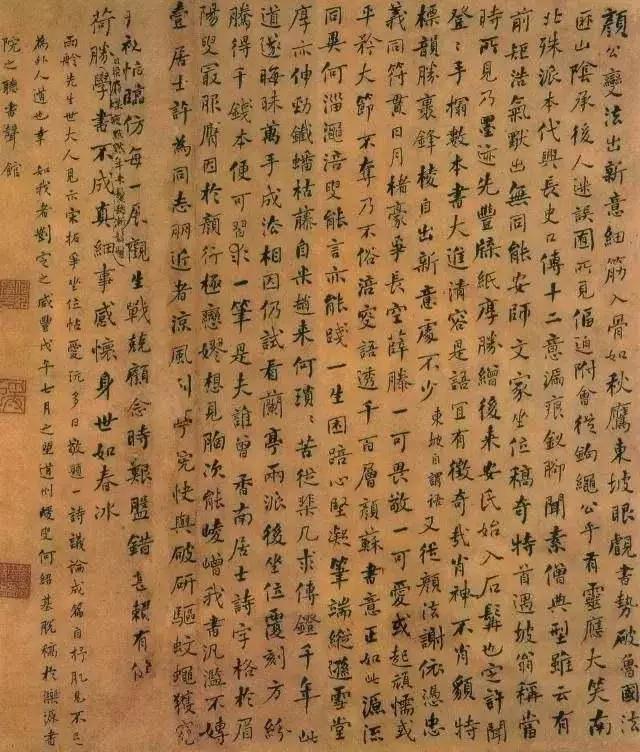 顏公變法出新意細筋入骨如秋鷹東坡眼覷書勢破魯國法
匪山陰承後人迷誤面所見傴迫附會從鉤繩公乎有靈應大笑南
北殊派本代興長史口傳十二意漏痕釵腳聞素僧典型雖云有
前矩浩氣獸出無同能安師文家坐位稿奇特首遇坡翁稱當
時所見乃墨迹先豐縑紙摩勝繒後來安民始入石髯也定許聞
登登手搨數本書大進清容是語宜有徵奇哉肖神不肖貌特
標韻勝裹鋒棱自出新意處不少東坡自謂語又從顏法謝依憑忠
義同符貫日月楮豪爭長空薛滕一可畏敬一可愛或起頑懦或
平矜大節不奪乃不俗涪叟語透千百層顏蘇書意正如此源流
同異何淄澠涪叟能言亦能踐一生困踣心堅凝筆端縱遜雪堂
厚亦伸勁鐵蟠枯藤自米趙來何瑣瑣苦從棐几求傳鐙千年此
道遂晦昧萬手成法相因仍試看蘭亭兩派後坐位覆刻方紛
騰得千錢本便可習求一筆是夫誰曾香南居士詩字格於眉
陽叟最服膺因於顏行極戀嫪想見胸次能崚嶒我書汎濫不專
壹居士許為同志朋近者涼風到學究快與破研驅蚊蠅玃
手初怡臨仿每一展觀生戰兢顧念時艱盬錯甚賴有
荷勝學書不成真細事感懷身世如春冰
雨舲先生世大人見示宋拓爭坐位帖愛玩多日敬題一詩議論成篇自抒肊見不足
為外人道也幸如我者劉定之咸豐戊午七月之望道州蝯叟何紹基脫稿於濼源書
院之聽書聲館